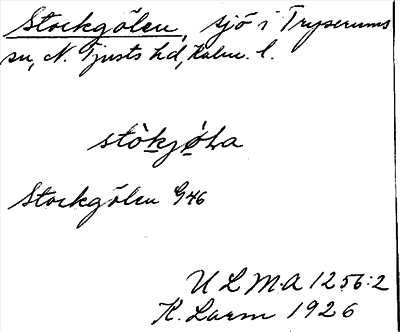 Stockgölen, sjö i Tryserums
sn, N. Tjusts hd, Kalm. l.
stòkjø̀La
Stockgölen G46
ULMA 1256:2
K. Larm 1926